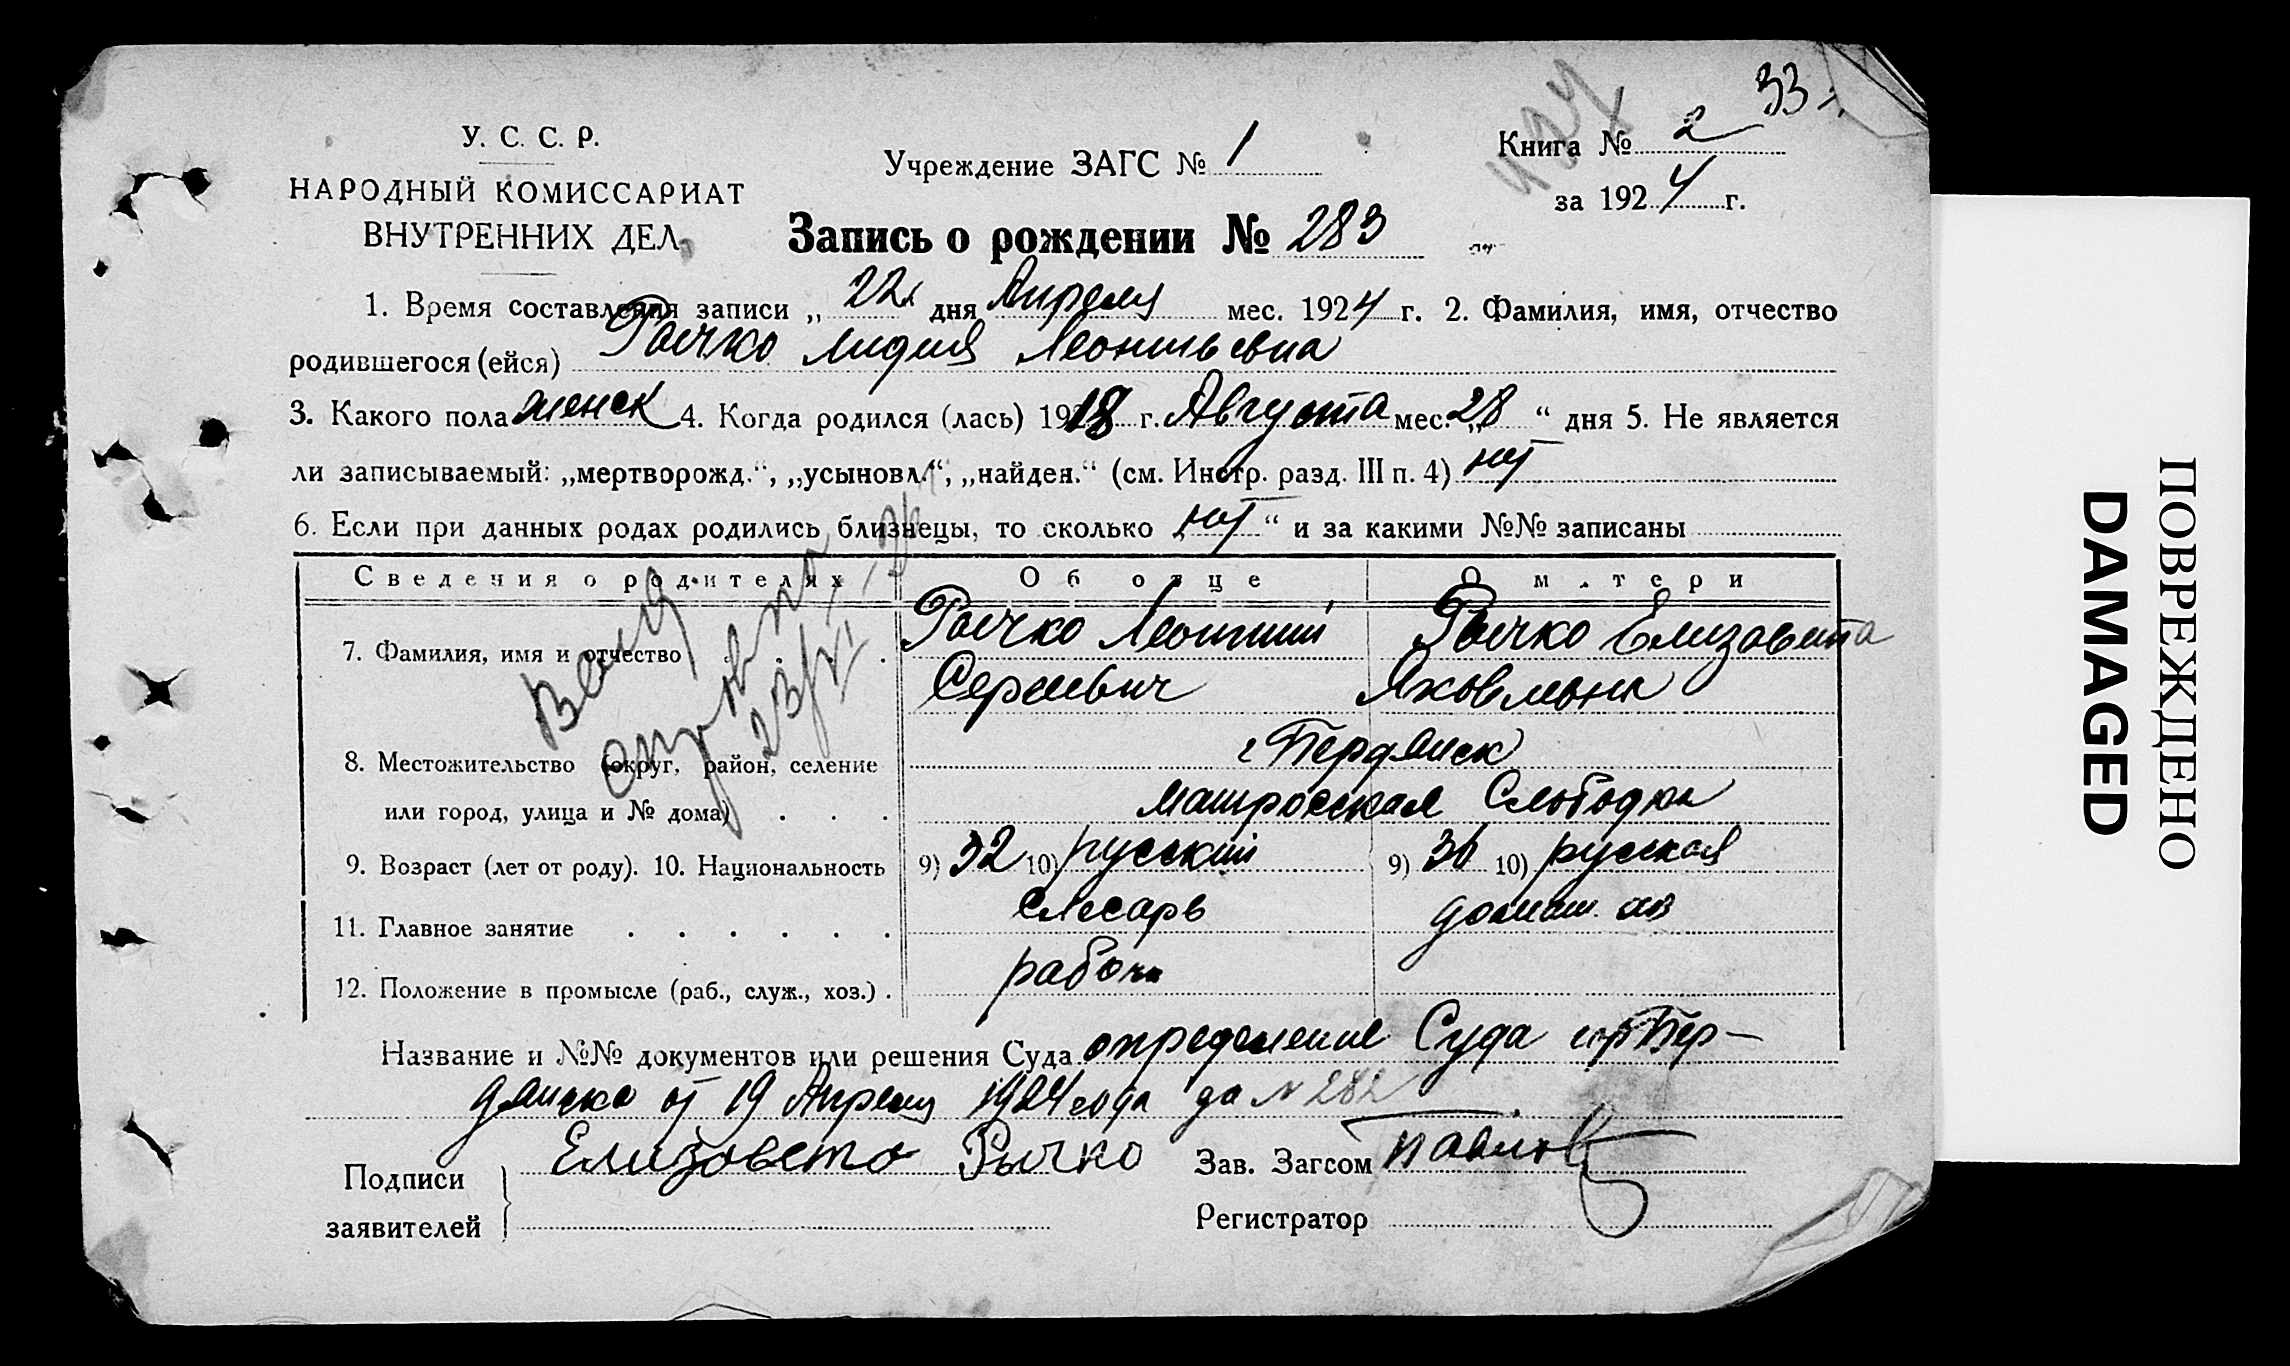 33
У. С. С. Р.
НАРОДНЫЙ КОМИССАРИАТ
ВНУТРЕННИХ ДЕЛ
Учреждение ЗАГС № 1
Книга № 2
за 1924 г.
Запись о рождении № 283
1. Время составления записи „ 22 дня Апреля мес. 1924 г. 2. Фамилия, имя, отчество
родившегося (ейся) Рычко Лидия Леонтьевна
3. Какого пола женск 4. Когда родился (лась) 1918 г. Августа мес. „28 “ дня 5. Не является
ли записываемый: „мертворожд.“, „усыновл.“, „найден.“ (см. Инстр. разд. III п. 4) нет
6. Если при данных родах родились близнецы, то сколько нет “ и за какими №№ записаны
Сведения о родителях Об отце О матери
7. Фамилия, имя и отчество Рычко Леонтий Рычко Елизавета
Сергеевич Яковлевна
8. Местожительство (округ, район, селение г Бердянск
или город, улица и № дома) Матросская Слободка
9. Возраст (лет от роду). 10. Национальность 9) 32 10) русский 9) 36 10) русская
11. Главное занятие слесарь домаш. хоз
12. Положение в промысле (раб., служ., хоз.) рабоч
Название и №№ документов или решения Суда определение Суда гор Бер-
дянска от 19 Апреля 1924 года да № 282
Подписи Елизовето Рычко Зав. Загсом Павлов
заявителей Регистратор
ПОВРЕЖДЕНО
DAMAGED